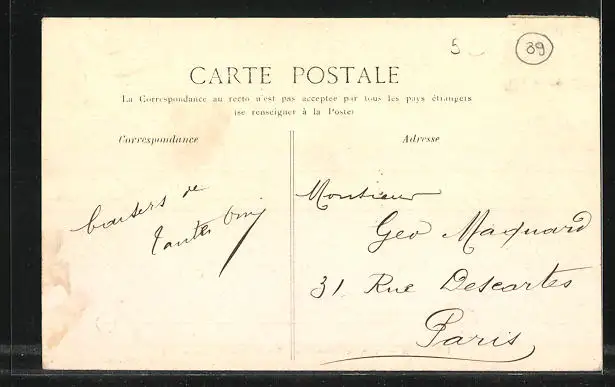 5
89
CARTE POSTALE
La Correspondance au recto n'est pas acceptée par tous les pays étrangers
(se renseigner à la Poste)
Correspondance
Adresse
baisers de
tante
Monsieur
Geo Maquard
31 Rue Descartes
Paris